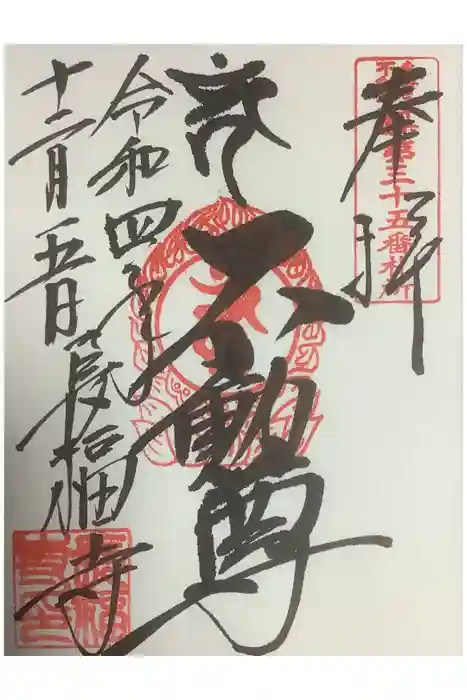 奉拝
不動尊
令和四年
十二月五日
長福寺
第三十五番札所